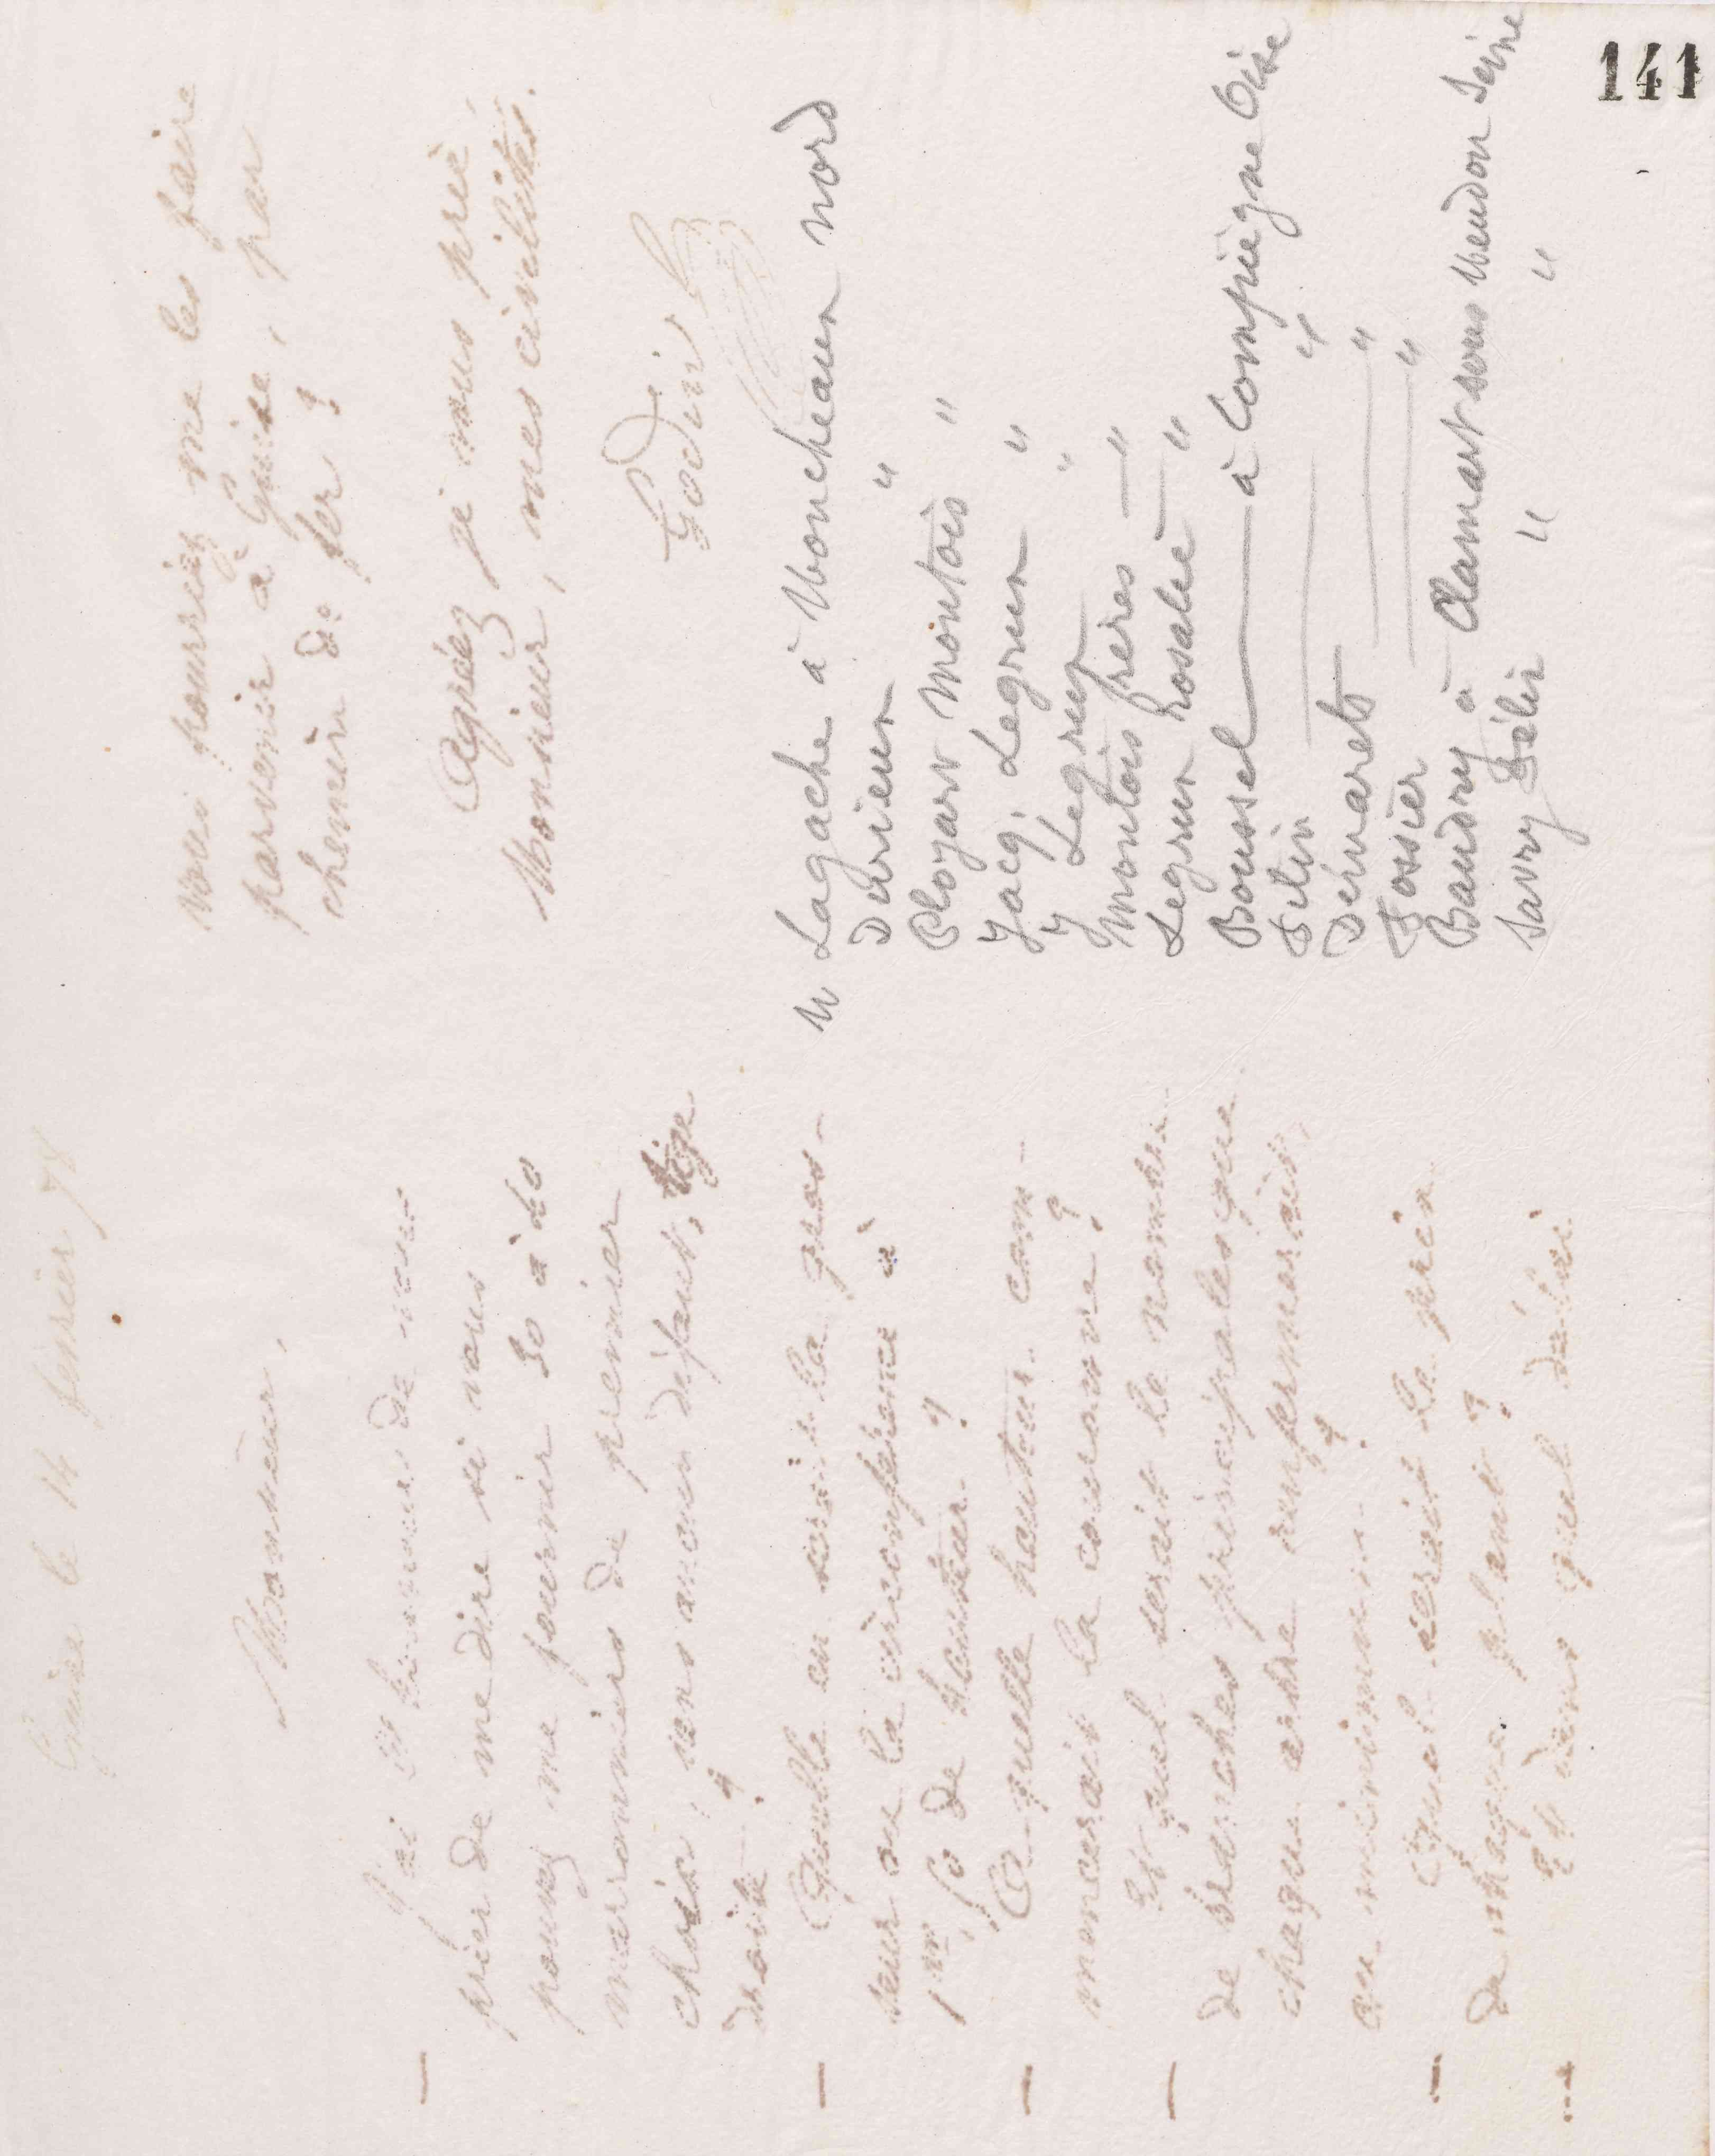 Guise le 14 février 78
Monsieur,
J'ai l'honneur de vous
prier de me dire si vous
pouvez me fournir 30 à 40
marronniers de premier
choix, sans aucun défaut, tige
droite ?
Quelle en serait la gros-
seur ou la circonférence à
1m,50 de hauteur ?
A quelle hauteur com-
mencerait la couronne ?
Et quel serait le nombre
de branches principales que
chaque arbre renfermerait,
au minimum ?
Quel serait le prix
de chaque plant ?
Et dans quel délai
vous pourriez me les faire
parvenir à Guise, par
chemin de fer ?
Agréez je vous prie,
Monsieur, mes civilités.
Godin
M Lagache à Moncheaux nord
Durieux "
Cloyart Montois "
Jacq. Legrux "
J Legrux " "
Montois frères — "
Legrux Rosalie — "
Boussel — à Compiègne Oise
"
Demarets — "
Fossier — "
Baudry à Clamart sous Meudon Seine
Savry Félix " "
141